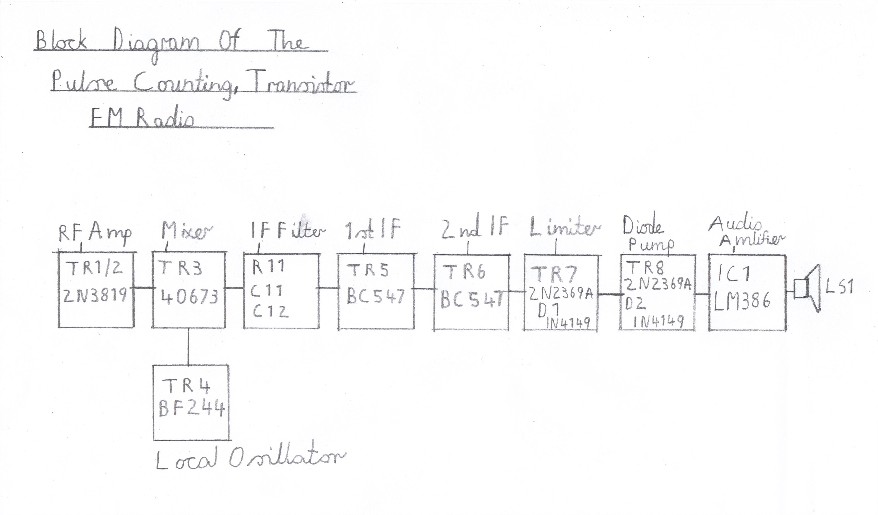 Block Diagram Of The
Pulse Counting, Transistor
FM Radio
RF Amp
TR1/2
2N3819
Mixer
TR3
40673
IF Filter
R11
C11
C12
1st IF
TR5
BC547
2nd IF
TR6
BC547
Limiter
TR7
2N2369A
D1
1N4149
Diode
Pump
TR8
2N2369A
D2
1N4149
Audio
Amlifier
IC1
LM386
LS1
TR4
BF244
Local Osillator